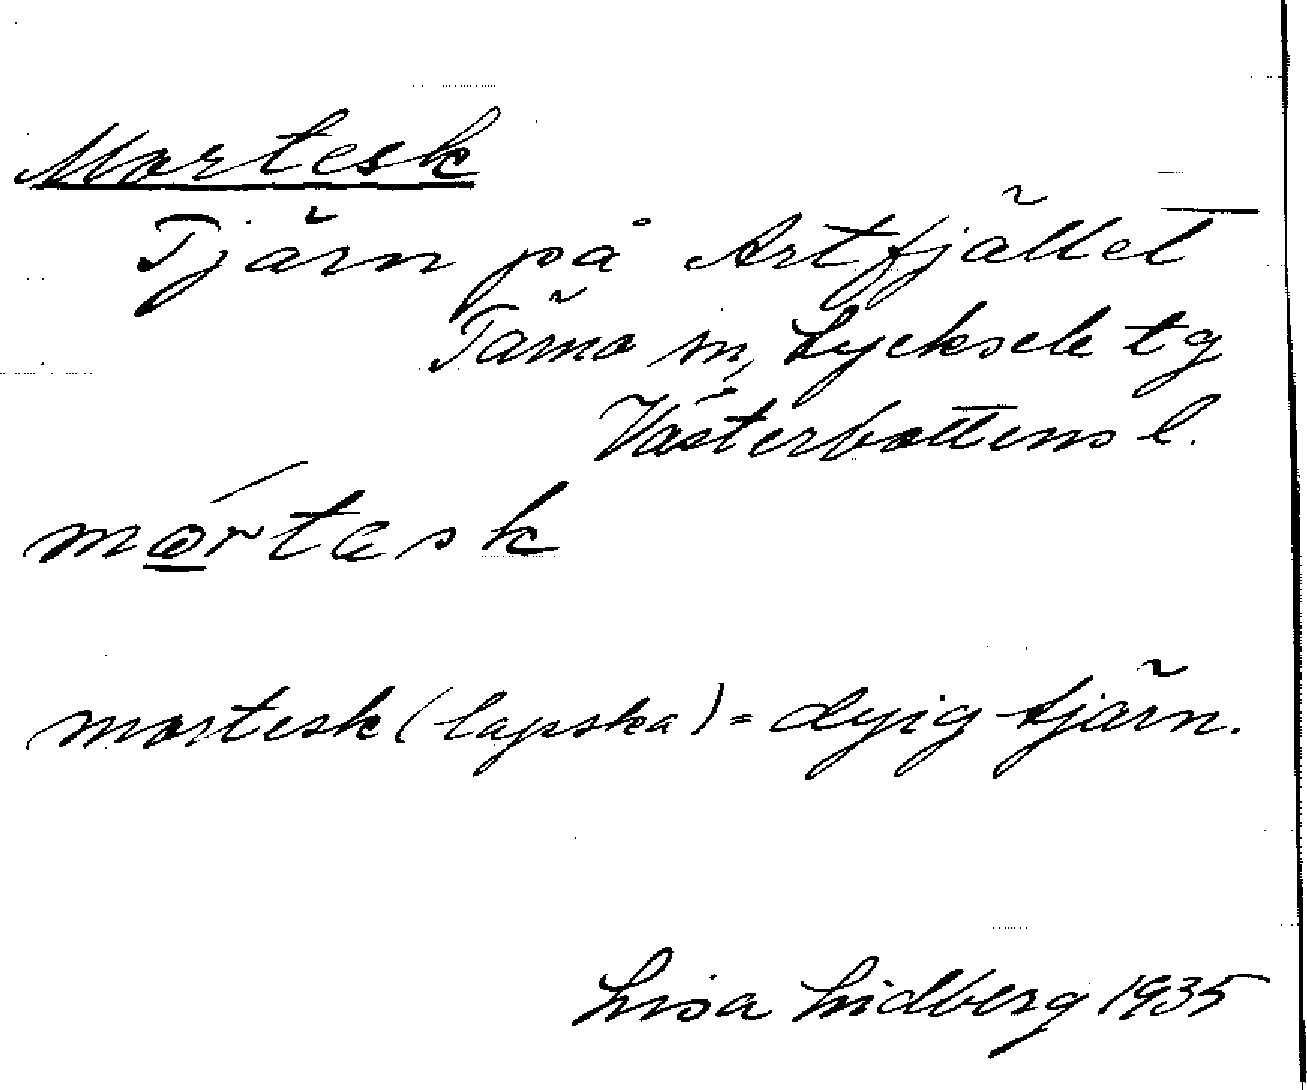 Mortesk
Tjärn på Artfjället
Tärna sn, Lycksele tg
Västerbottens l.
mórtesk
mortesk (lapska) = dyig tjärn.
Lisa Lidberg 1935